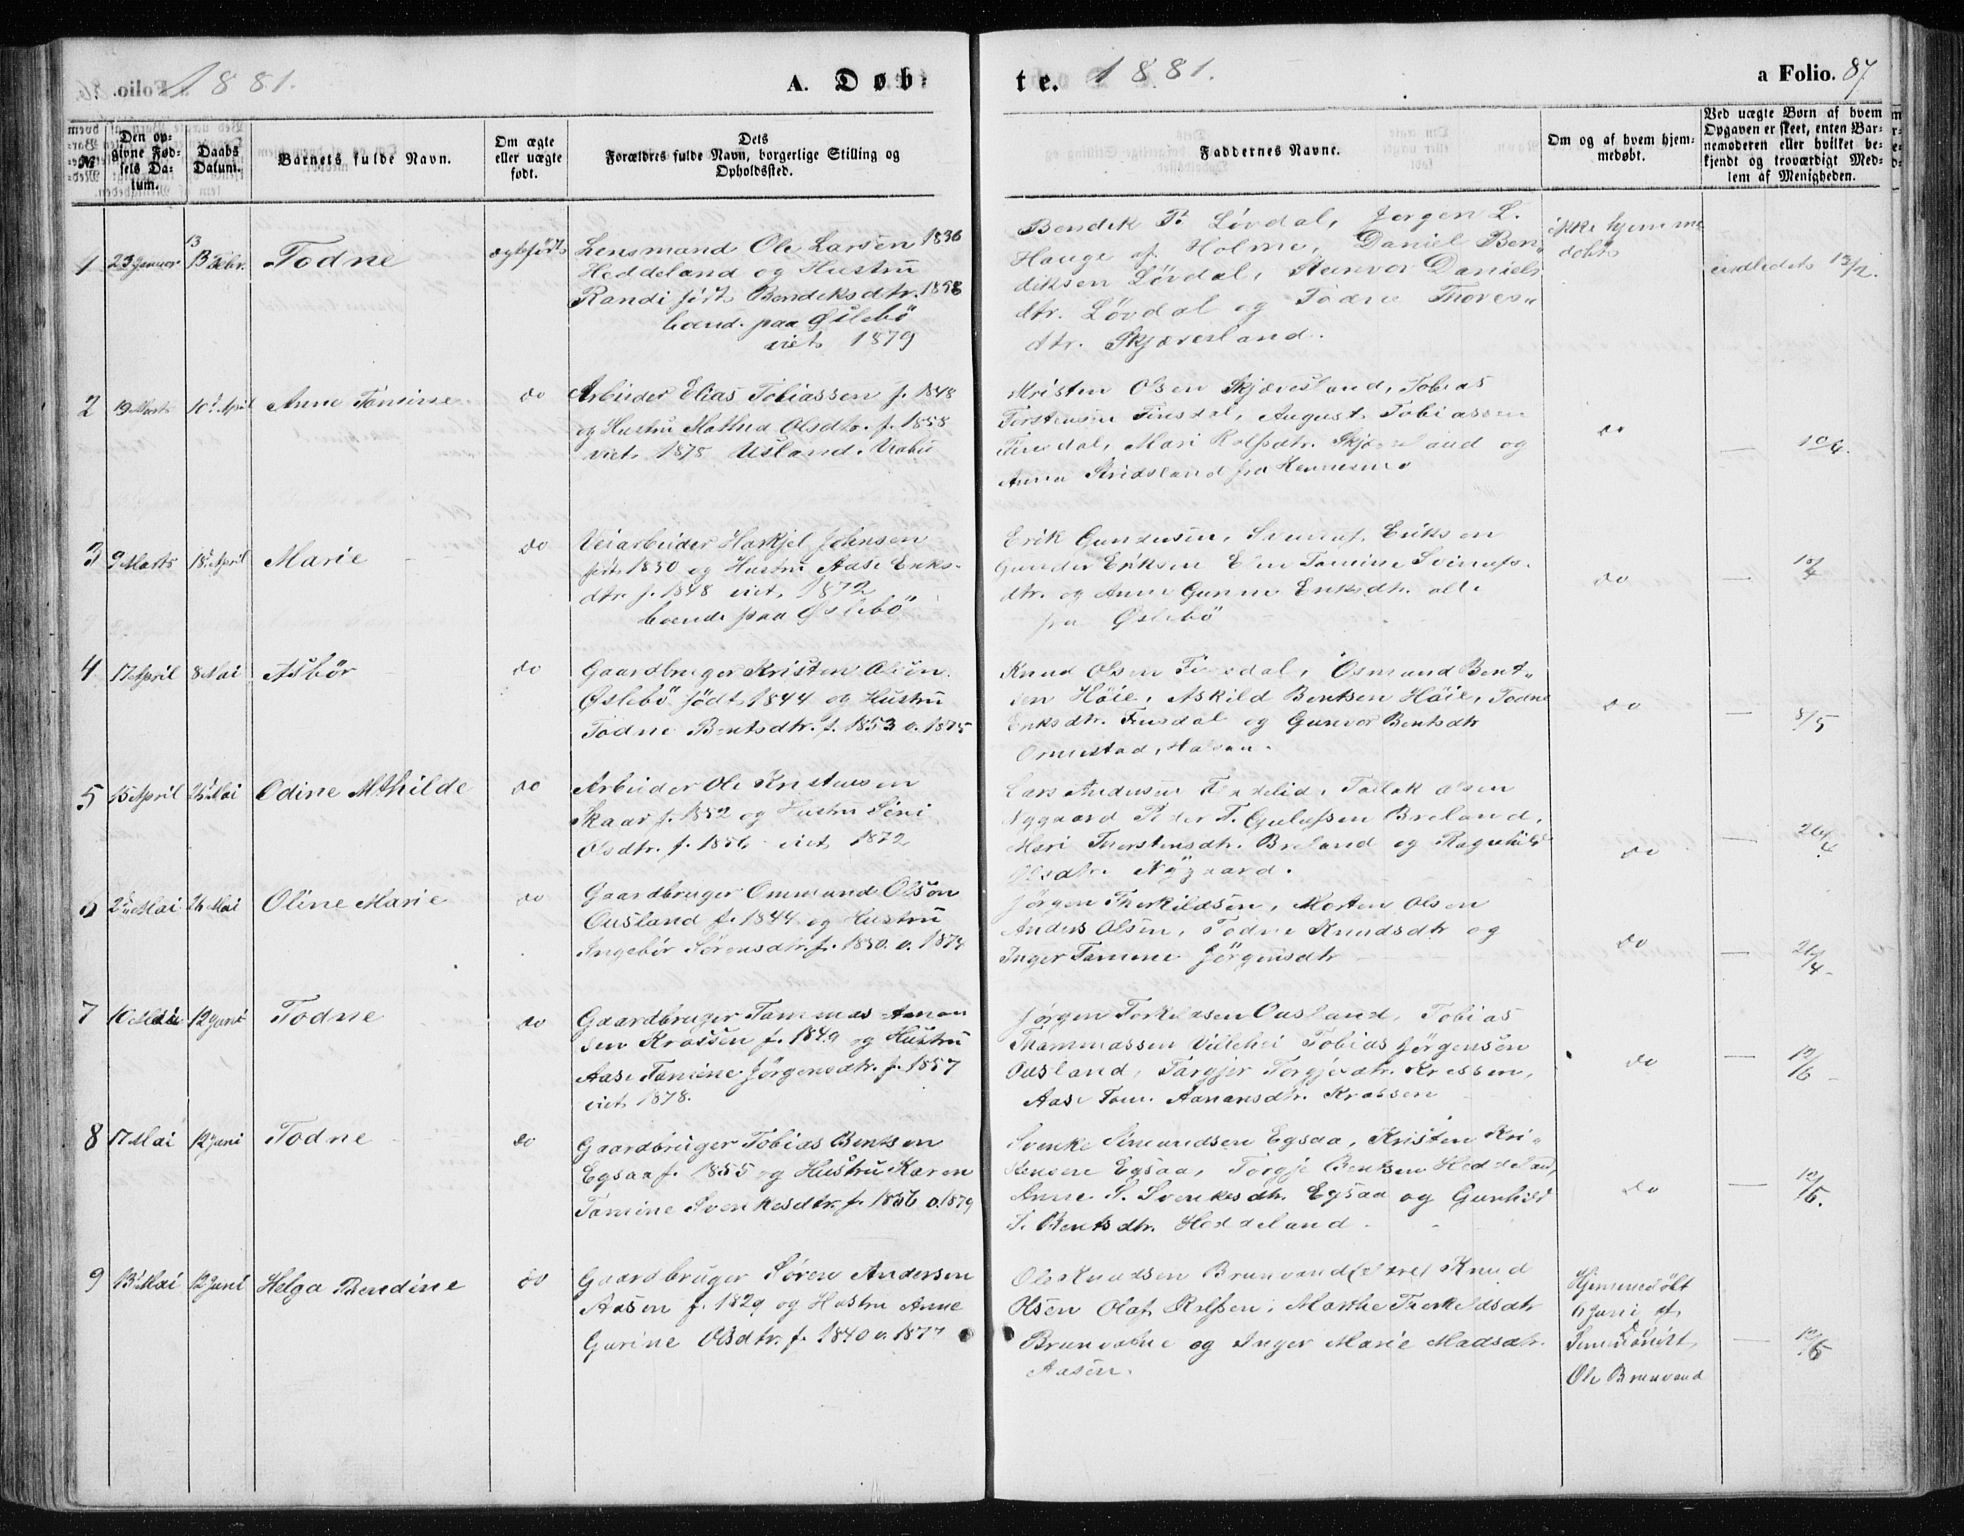 1881. A. Døb-
te. 1881. a Folio. 87
№
Den op-
givne Fød-
sels Da-
tum.
Daabs
Datum.
Barnets fulde Navn.
Om ægte
eller uægte
født.
Dets
Forældres fulde Navn, borgerlige Stilling og
Opholdssted.
Faddernes Navne.
Om og af hvem hjem-
medøbt.
Ved uægte Børn af hvem
Opgaven er skeet, enten Bar-
nemoderen eller hvilket be-
kjendt og troværdigt Med-
lem af Menigheden.
1 23 Januar 13 Febr. Todne ægtefødt
Lensmand Ole Larsen 1836
Heddeland og Hustru
Randi født Bendiksdtr. 1858
boend. paa Øslebö
viet 1879
Bendik P. Lövdal, Jørgen L.
Hauge af Holme, Daniel Ben-
diksen Lövdal, Gunvor Daniels
dtr. Lövdal og Todne Thores-
dtr. Skjævesland.
ikke hjemme
döbt
indledet 13/2.
2 19 Marts 10 April Anne Tomine do
Arbeider Elias Tobiassen f. 1848
og Hustru Mathea Olsdtr. f. 1858
viet 1878 Usland.
Kristen Olsen Skjævesland, Tobias
Torstensen Finsdal, August Tobiassen
Finsdal, Mari Rolfsdtr. Skjævesland og
Anna fra
do — 10/4.
3 9 Marts 18 April Marie do
Veiarbeider Johnsen
født 1850 og Hustru Aase Eriks-
dtr. f. 1848 viet 1872
boende paa Øslebö
Erik Gundersen, Eriksen
Gunder Eriksen Tomine
dtr. og Anne Gunne Eriksdtr. alle
fra Øslebö
do — 18/4
4 17 April 8 Mai Asbör do
Gaardbruger Kristen Olsen
Øslebö født 1844 og Hustru
Todne Bentsdtr. f. 1853 v. 1875
Knud Olsen Finsdal, Osmund Bent-
sen Höie, Askild Bentsen Höie, Todne
Eriksdtr. Finsdal og Gunvor Bentsdtr
do — 8/5
5 15 April 26 Mai Odine Mthilde do
Arbeider Ole Kristensen
Skaar f. 1852 og Hustru
Olsdtr. f. 1856 viet 1872
Lars Andersen Tallak Olsen
Nygaard Peder T. Breland,
Mari Thorstensdtr. Breland og Ragnhild
Olsdtr. Nygaard.
do — 26/4
6 Mai 26 Mai Oline Marie do
Gaardbruger Ommund Olsön
Ousland f. 1844 og Hustru
Ingebör Sörensdtr. f. 1850. v. 1874
Jørgen Therkildsen, Morten Olsen
Anders Olsen, Todne Knudsdtr og
Inger Tomine Jörgensdtr
do — 26/4
7 10 Mai 12 Juni Todne do
Gaardbruger Tommas Aanon
sen Krossen f. 1849 og Hustru
Aase Tomine Jørgensdtr. f. 1857
viet 1878.
Jørgen Torkildsen Ousland, Tobias
Thommassen Tobias Jørgensen
Ousland, Krossen,
Aase Tom. Aanonsdtr. Krossen
do — 12/6
8 17 Mai 12 Juni Todne do
Gaardbruger Tobias Bentsen
Egsaa f. 1855 og Hustru Karen
Tomine Svenkesdtr. f. 1856 v. 1879
Svenke Simundsen Egsaa, Kristen Kri-
stensen Egsaa, Torgje Bentsen Heddeland,
Anne S. Svenkesdtr. Egsaa og Gunhild
T. Bentsdtr. Heddeland.
do — 12/6.
9 13 Mai 12 Juni Helga Bendine do
Gaardbruger Søren Andersen
Aasen f. 1829 og Hustru Anne
Gurine Olsdtr. f. 1840 v. 1877
Ole Knudsen Brunvand Knud
Olsen Olaf Rolfsen, Marthe Terkeldsdtr
Brunvatne og Inger Marie Madsdtr.
Aasen.
Hjemmedöbt
6 Juni af
Ole Brunvand
— 12/6